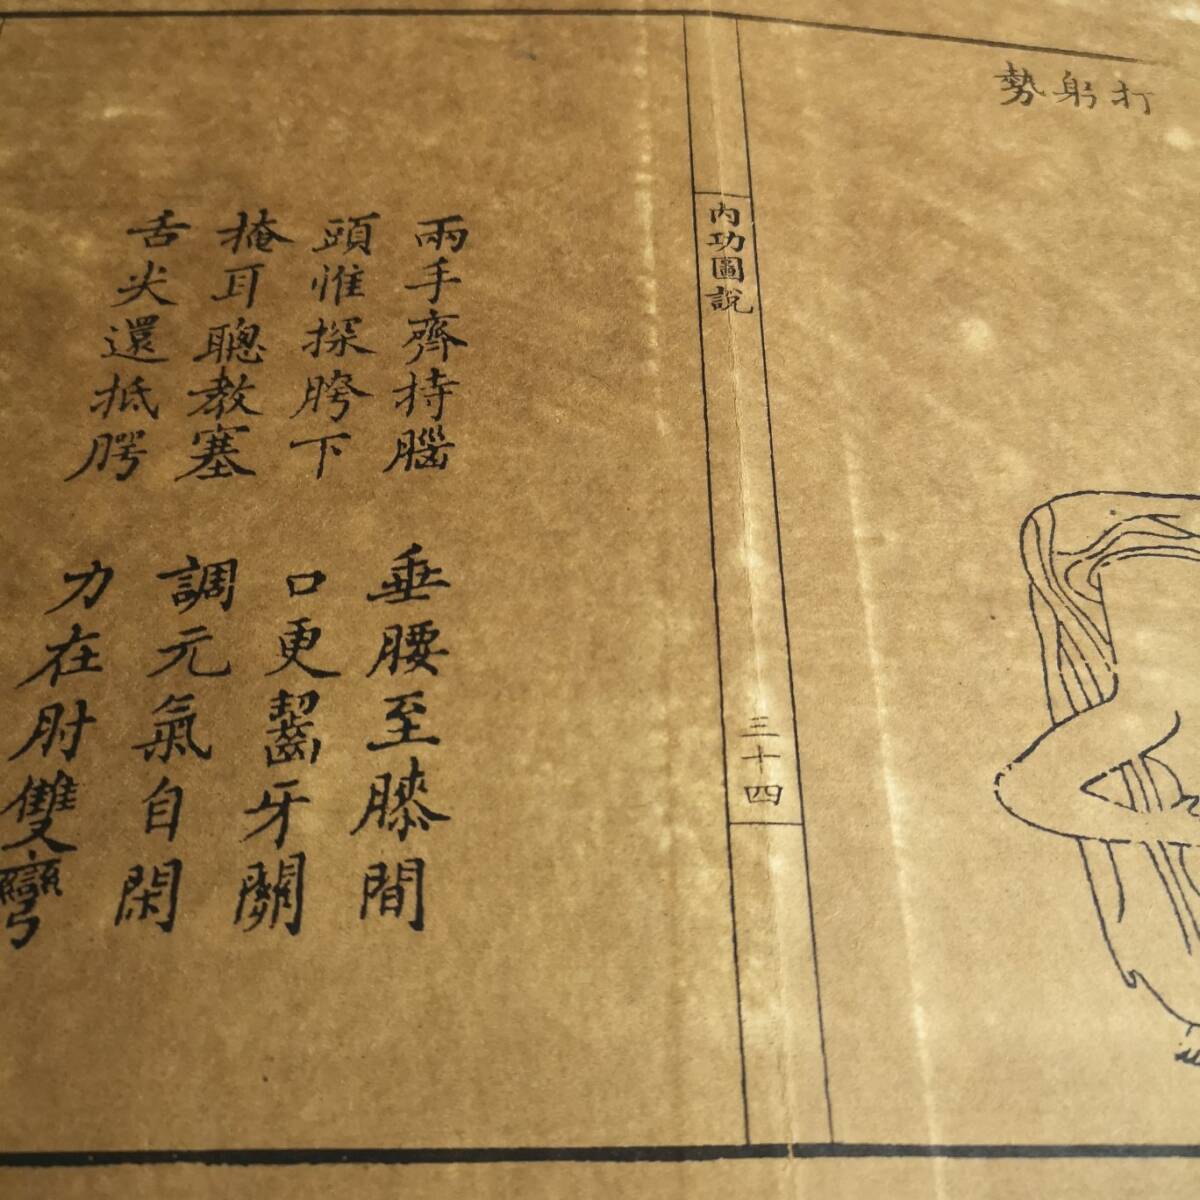 打躬勢
內功圖說
三十四
兩手齊持腦
垂腰至膝間
頭惟探胯下
口更齧牙關
掩耳聰教塞
調元氣自閑
舌尖還抵腭
力在肘雙彎